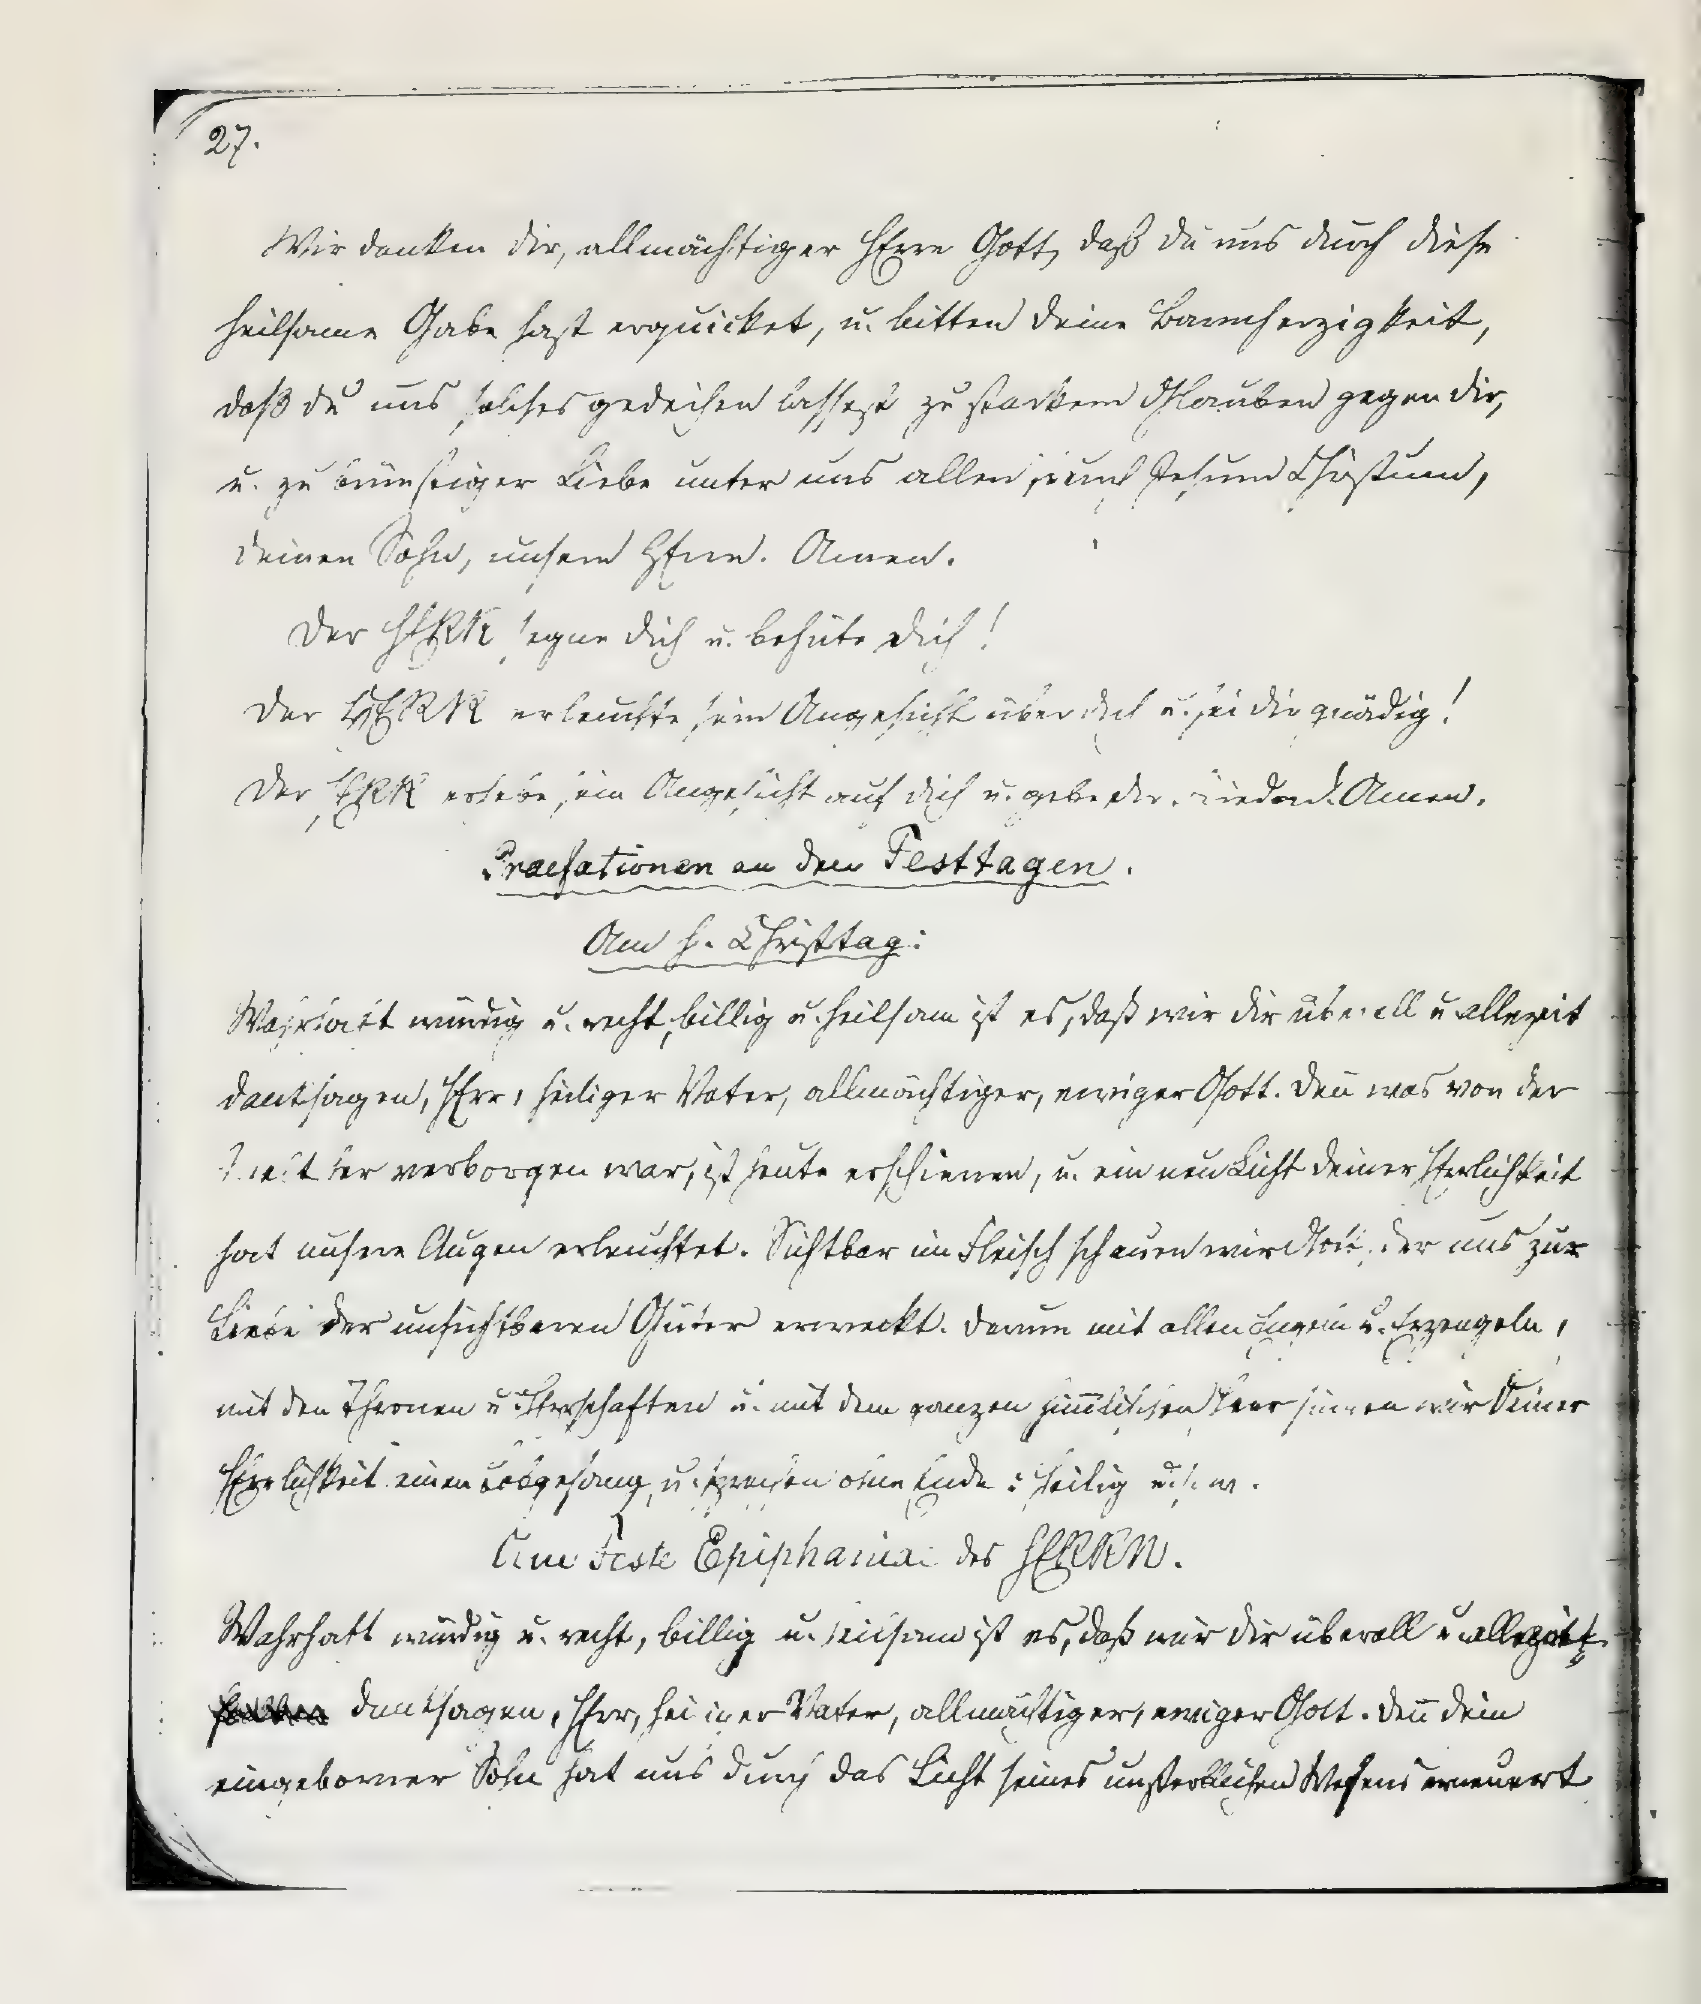 27.
Wir danken dir, allmächtiger HErre Gott, daß du uns durch diese
heilsame Gabe hast erquicket, u. bitten deine Barmherzigkeit,
daß du uns solches gedeihen lassest zu starkem Glauben gegen dir,
u. zu brünstiger Liebe unter uns allen durch Jesum Christum,
deinen Sohn, unsern HErrn. Amen.
Der HERR segne dich u. behüte dich!
Der HERR erleuchte sein Angesicht über dich u. sei dir gnädig!
Der HERR erhebe sein Angesicht auf dich u. gebe dir Frieden! Amen.
Praefationen an den Festtagen.
Am h. Christtag:
Wahrhaft würdig u. recht, billig u. heilsam ist es, daß wir dir überall u allezeit
danksagen, HErr, heiliger Vater, allmächtiger, ewiger Gott. Den̄ was von der
Welt her verborgen war, ist heute erschienen, u. ein neu Licht deiner Herlichkeit
hat unsere Augen erleuchtet. Sichtbar im Fleisch schauen wir Gott, der uns zur
Liebe der unsichtbaren Güter erweckt. Darum mit allen Engeln u. Erzengeln,
mit den Thronen u. Herrschaften u. mit dem ganzen him̄lischen Heer singen wir Deiner
Herrlichkeit einen Lobgesang u. sprechen ohne Ende: Heilig u.s.w.
Am Feste Epiphaniae des HERRN.
Wahrhaft würdig u. recht, billig u. heilsam ist es, daß wir dir überall u allezeit
danksagen, HErr, heiliger Vater, allmächtiger, ewiger Gott. Den̄ dein
eingeborner Sohn hat uns durch das Licht seines unsterblichen Wesens erneuert